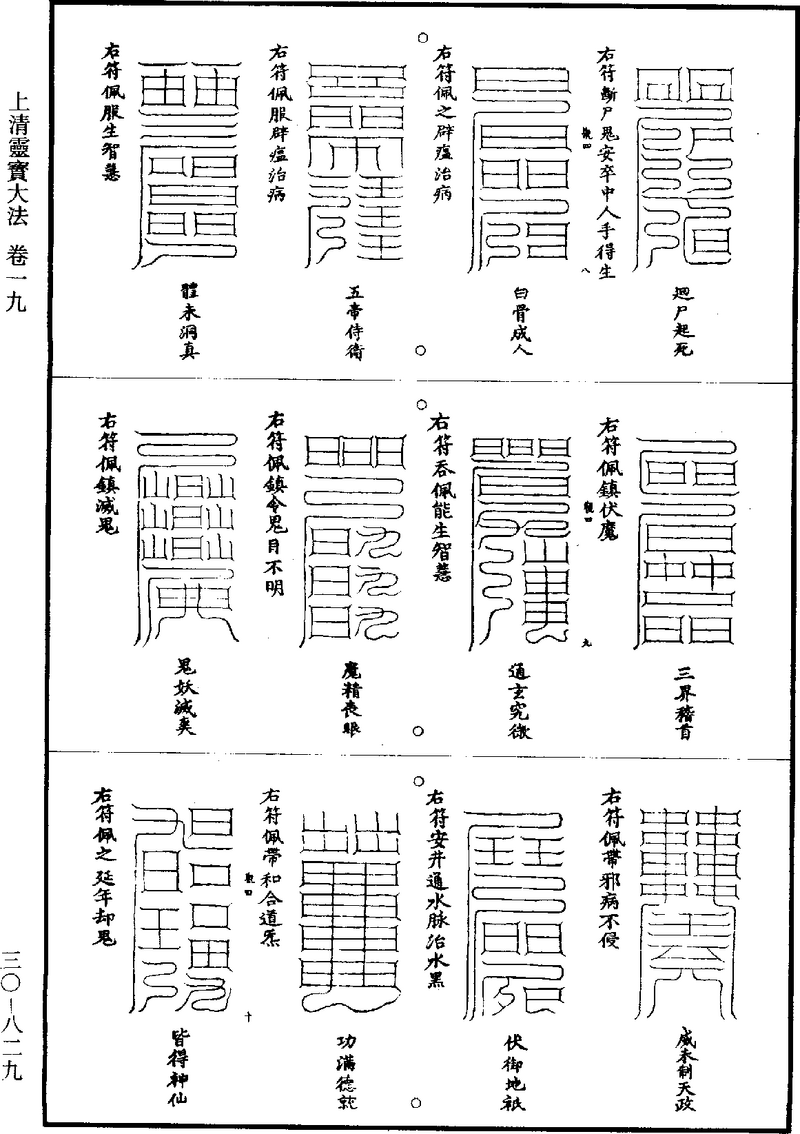 上清靈寶大法 卷一九
三〇—八二九
迴尸起死
右符斷尸鬼安卒中人手得生
觀四
八
白骨成人
右符佩之辟瘟治病
五帝侍衛
右符佩服辟瘟治病
體未洞真
右符佩服生智慧
三界稽首
右符佩鎮伏魔
觀四
九
通玄究微
右符吞佩能生智慧
魔精喪眼
右符佩鎮令鬼目不明
鬼妖滅爽
右符佩鎮滅鬼
威未制天政
右符佩帶邪病不侵
伏御地祇
右符安井通水脉治水黑
功滿德就
右符佩帶和合道炁
觀四
十
皆得神仙
右符佩之延年却鬼